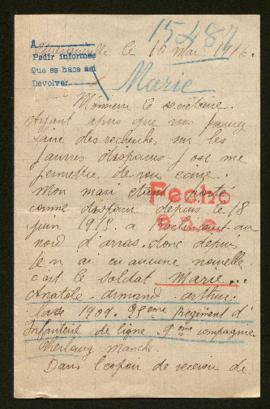 15487
A
Pedir informes
Que se haga así
Devolver.
le 16 Mai 1916.
Marie
Monsieur le secretaire
Ayant apris que vous pouvez
faire des recherches sur les
pauvres disparus j'ose me
permettre de vous
Mon mari étant porté
Fecho
comme disparu depuis le 18
juin 1915 a
au
nord d'arras. donc depuis
je n'ai eu aucune nouvelle
c'est le soldat Marie
Anatole armand arthur
classe 1909. régiment d'
infanterie de ligne. 9eme compagnie
Cherbourg Manche
Dans l'espoir de recevoir de